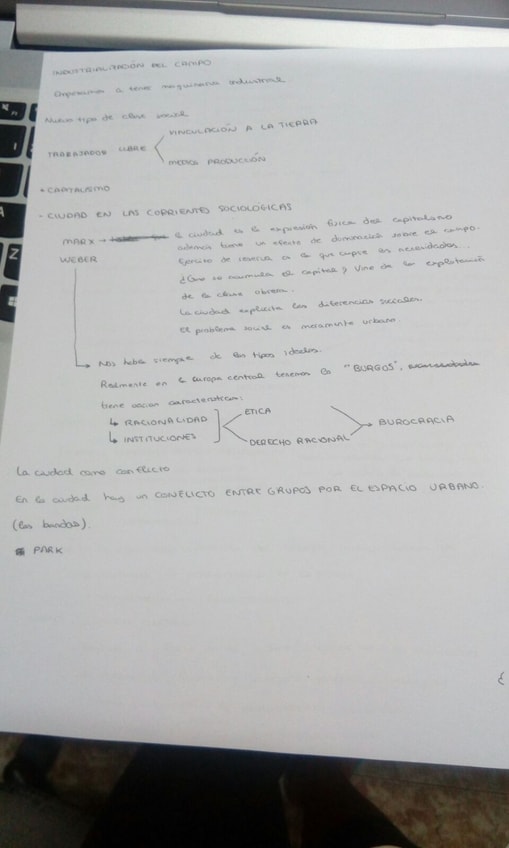 INDUSTRIALIZACIÓN DEL CAMPO
Empezamos a tener maquinaria industrial.
Nuevo tipo de clase social
VINCULACIÓN A LA TIERRA
TRABAJADOR LIBRE
MENOS PRODUCCIÓN
+ CAPITALISMO
- CIUDAD EN LAS CORRIENTES SOCIOLÓGICAS
MARX → la ciudad es la expresión física del capitalismo
además tiene un efecto de dominación sobre el campo.
Ejército de reserva a la que cubre las necesidades.
¿Cómo se acumula el capital? Vino de la explotación
de la clase obrera.
La ciudad explicita las diferencias sociales.
El problema social es meramente urbano.
WEBER
→ Nos habla siempre de los tipos ideales.
Realmente en la Europa central tenemos los "BURGOS",
tiene varias características:
↳ RACIONALIDAD
↳ INSTITUCIONES
ETICA
DERECHO RACIONAL
→ BUROCRACIA
La ciudad como conflicto
En la ciudad hay un CONFLICTO ENTRE GRUPOS POR EL ESPACIO URBANO.
(las bandas).
PARK